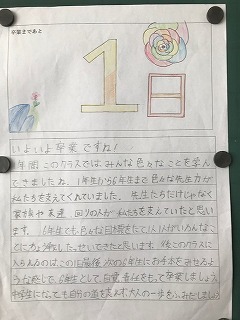 卒業まであと
1日
いよいよ卒業ですね!
年間このクラスでは、みんな色々なことを学ん
できましたね。1年生から6年生まで色々な先生方が
私たちを支えてくれていました。先生たちだけじゃなく
家族や友達、回りの人が私たちを支えていたと思い
ます。6年生でも色々な目標をたて1人1人がいろんなこ
とに力を
せいちょうしてきたと思います。後このクラスに
入られるのはこの1日最後次の6年生にお手本をみせるよ
うな感じで、6年生として自覚、責任をもって卒業しましょう。
中学生になっても自分の道を大人の一歩をふみだしましょう